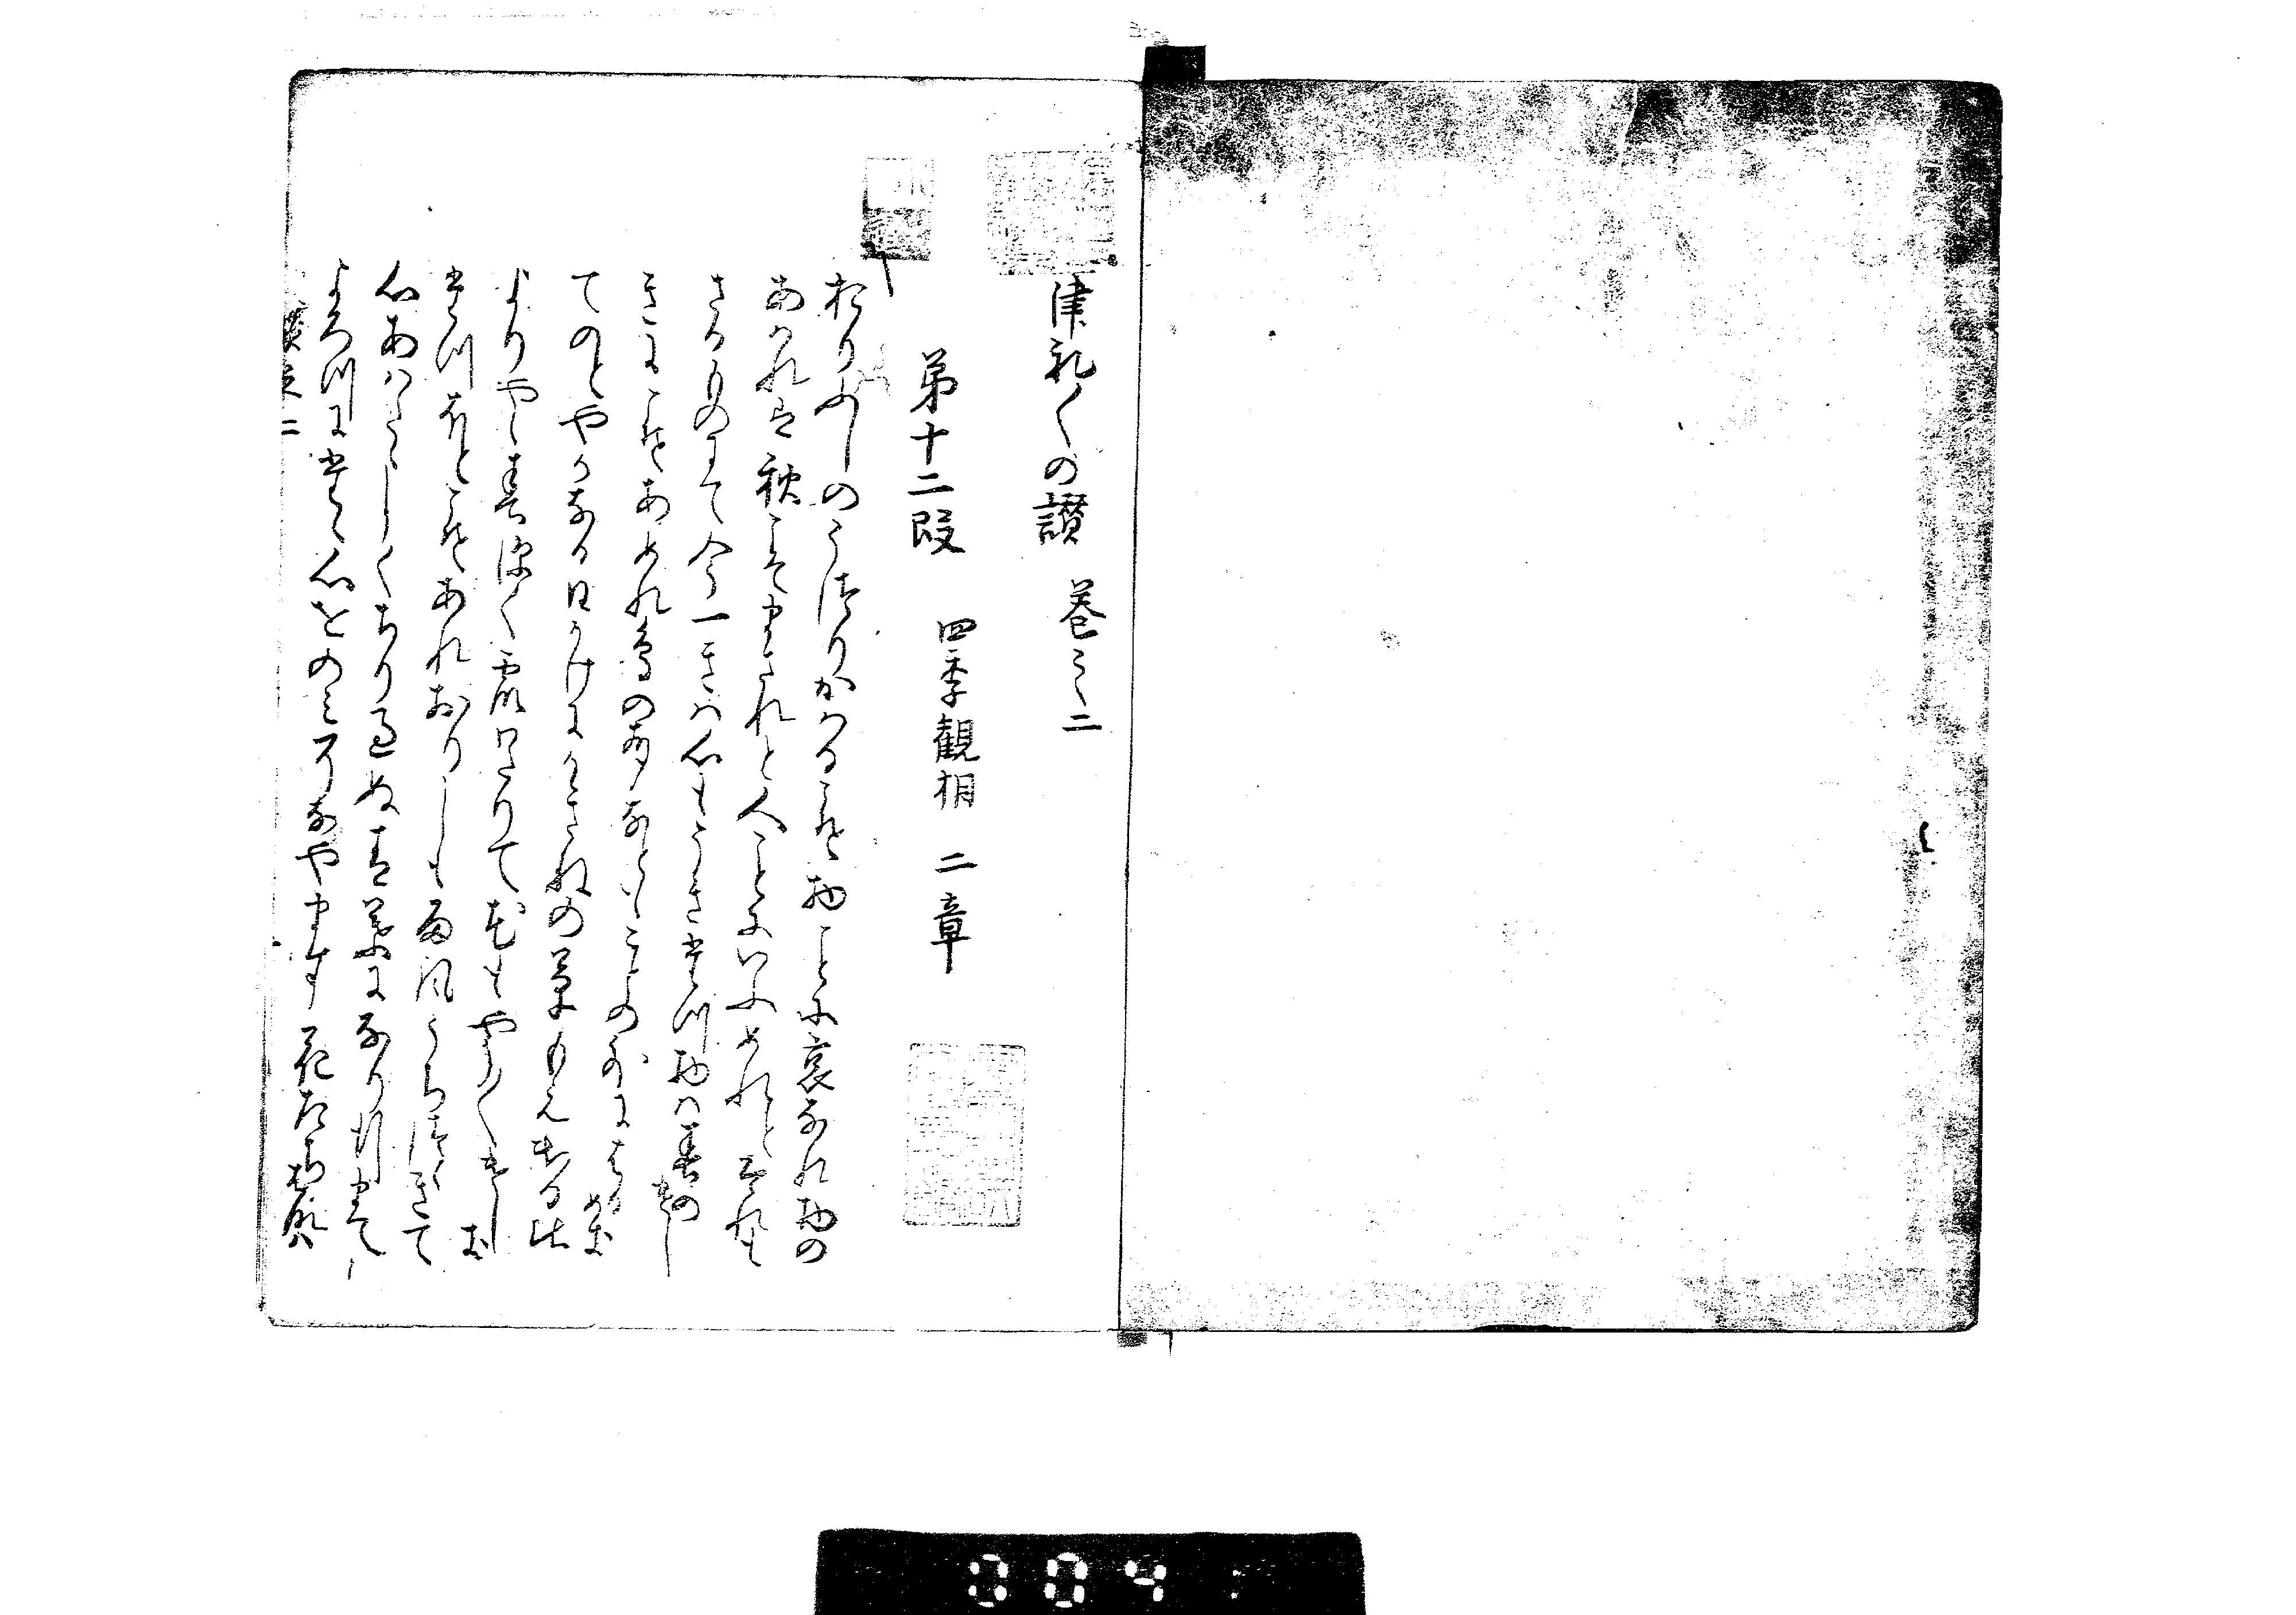 津礼〱の讃　巻之二
第十二段　四季観相　二章
おりふしのうつりかはるこそ物ことに哀なれ物の
あはれは秋こそまされと人ことにいふめれとそれも
さるものにて今一きは心もうきたつ物は春のけし
きにこそあめれ鳥の声なともことの外に春めき
てのとやかなる日かけにかきねの草もえ出る比
よりやゝ春深く霞わたりて花もやう〱けしき
たつほとこそあれおりしも雨風うちつゞきて
心あはたゝしくちり過ぬ青葉になり行まて
よろつにたゝ心をのみそなやます花たち花は
讃巻二
0047